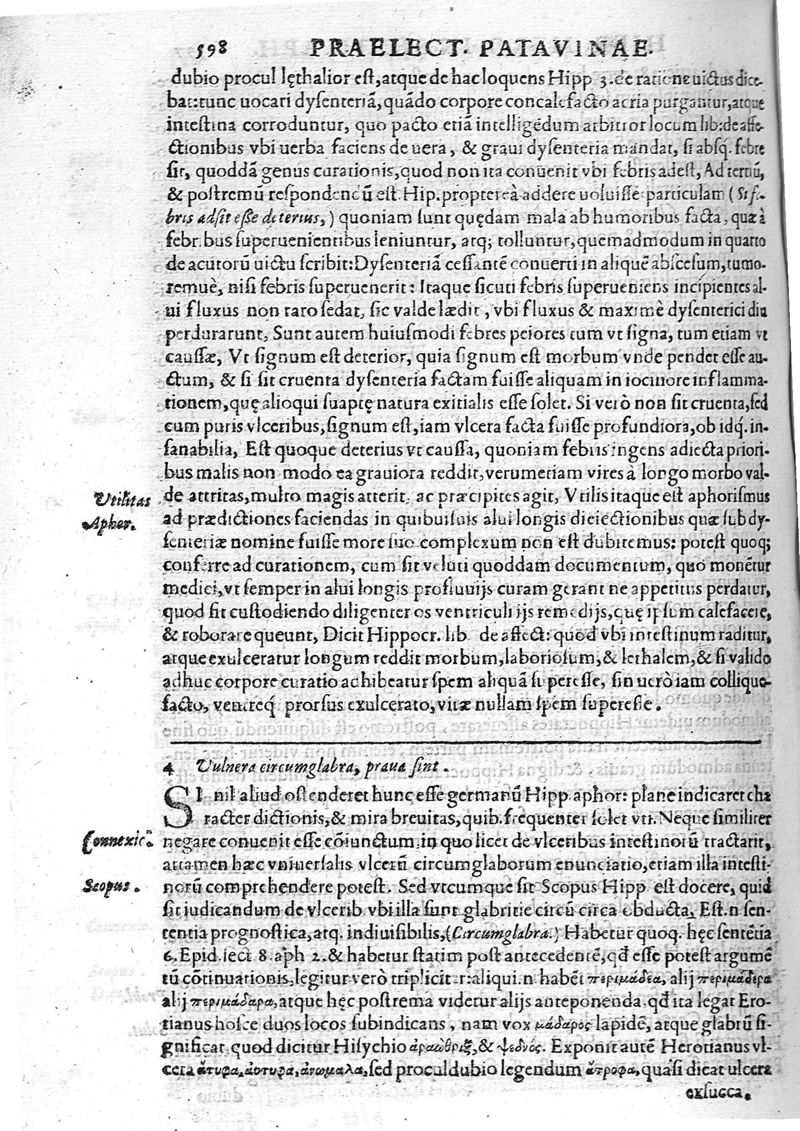 598 PRAELECT. PATAVINAE.
dubio procul lęthalior est, atque de hac loquens Hipp 3. de ratione uictus dice-
bat: tunc uocari dysenteriā, quādo corpore concalefacto acria purgantur, atque
intestina corroduntur, quo pacto etiā intelligēdum arbitror locum lib: de affe-
ctionibus vbi uerba faciens de uera, & graui dysenteria mandat, si absq. febre
sit, quoddā genus curationis, quod non ita conuenit vbi febris adest, Ad tertiū,
& postremū respondendū est. Hip. propterea addere uoluisse particulam (Si fe-
bris adsit esse deterius,) quoniam sunt quędam mala ab humoribus facta, quæ à
febribus superuenientibus leniuntur, atq; tolluntur, quemadmodum in quarto
de acutorū uictu scribit: Dysenteriā cessantē conuerti in aliquē abscesum, tumo-
remuè, nisi febris superuenerit: Itaque sicuti febris superueniens incipientes al-
ui fluxus non raro sedat, sic valde lædit, vbi fluxus & maximè dysenterici diu
perdurarunt, Sunt autem huiusmodi febres peiores tum vt signa, tum etiam vt
caussæ, Vt signum est deterior, quia signum est morbum vnde pendet esse au-
ctum, & si sit cruenta dysenteria factam fuisse aliquam in iocinore inflamma-
tionem, quę alioqui suaptę natura exitialis esse solet. Si verò non sit cruenta, sed
cum puris vlceribus, signum est, iam vlcera facta fuisse profundiora, ob idq. in-
sanabilia, Est quoque deterius vt caussa, quoniam febris ingens adiecta priori-
bus malis non modo ea grauiora reddit, verumetiam vires à longo morbo val-
Utilitas de attritas, multo magis atterit, ac præcipites agit, Vtilis itaque est aphorismus
Aphor. ad prædictiones faciendas in quibusuis alui longis dieiectionibus quæ sub dy-
senteriæ nomine fuisse more suo complexum non est dubitemus: potest quoq;
conferre ad curationem, cum sit veluti quoddam documentum, quo monētur
medici, vt semper in alui longis profluuijs curam gerant ne appetitus perdatur,
quod fit custodiendo diligenter os ventriculi ijs remedijs, quę ipsum calefacere,
& roborare queunt, Dicit Hippocr. lib. de affect: quod vbi intestinum raditur,
atque exulceratur longum reddit morbum, laboriosum, & lethalem, & si valido
adhuc corpore curatio adhibeatur spem aliquā superesse, sin uerò iam collique-
facto, ventreq; prorsus exulcerato, vitæ nullam spem superesse.
4 Vulnera circumglabra, praua sint.
SI nil aliud ostenderet hunc esse germanū Hipp. aphor: plane indicaret cha
racter dictionis, & mira breuitas, quib. frequenter solet vti. Neque similiter
Connexio. negare conuenit esse cōiunctum, in quo licet de vlceribus intestinorū tractarit,
attamen hæc vniuersalis vlcerū circumglaborum enunciatio, etiam illa intesti-
Scopus. norū comprehendere potest. Sed vtcumque sit Scopus Hipp est docere, quid
sit iudicandum de vlcerib vbi illa sunt glabritie circū circa obducta, Est. n sen-
tentia prognostica, atq. indiuisibilis, (Circumglabra.) Habetur quoq. hęc sentētia
6. Epid. sect 8. aph 2. & habetur statim post antecedentē, qđ esse potest argumē
tū cōtinuationis, legitur verò tripliciter: aliqui. n habēt περιμάδεα, alij περιμάδερα
alij περιμάδαρα, atque hęc postrema videtur alijs anteponenda, qđ ita legat Ero-
tianus hosce duos locos subindicans, nam vox μάδαρος lapidē, atque glabrū si-
gnificat, quod dicitur Hisychio ἀραιόθριξ, & ψεδνός. Exponit autē Herotianus vl-
cera ἄτυφα, ἄντυφα, ἀνωμαλα, sed proculdubio legendum ἄτροφα, quasi dicat ulcera
exsucca.